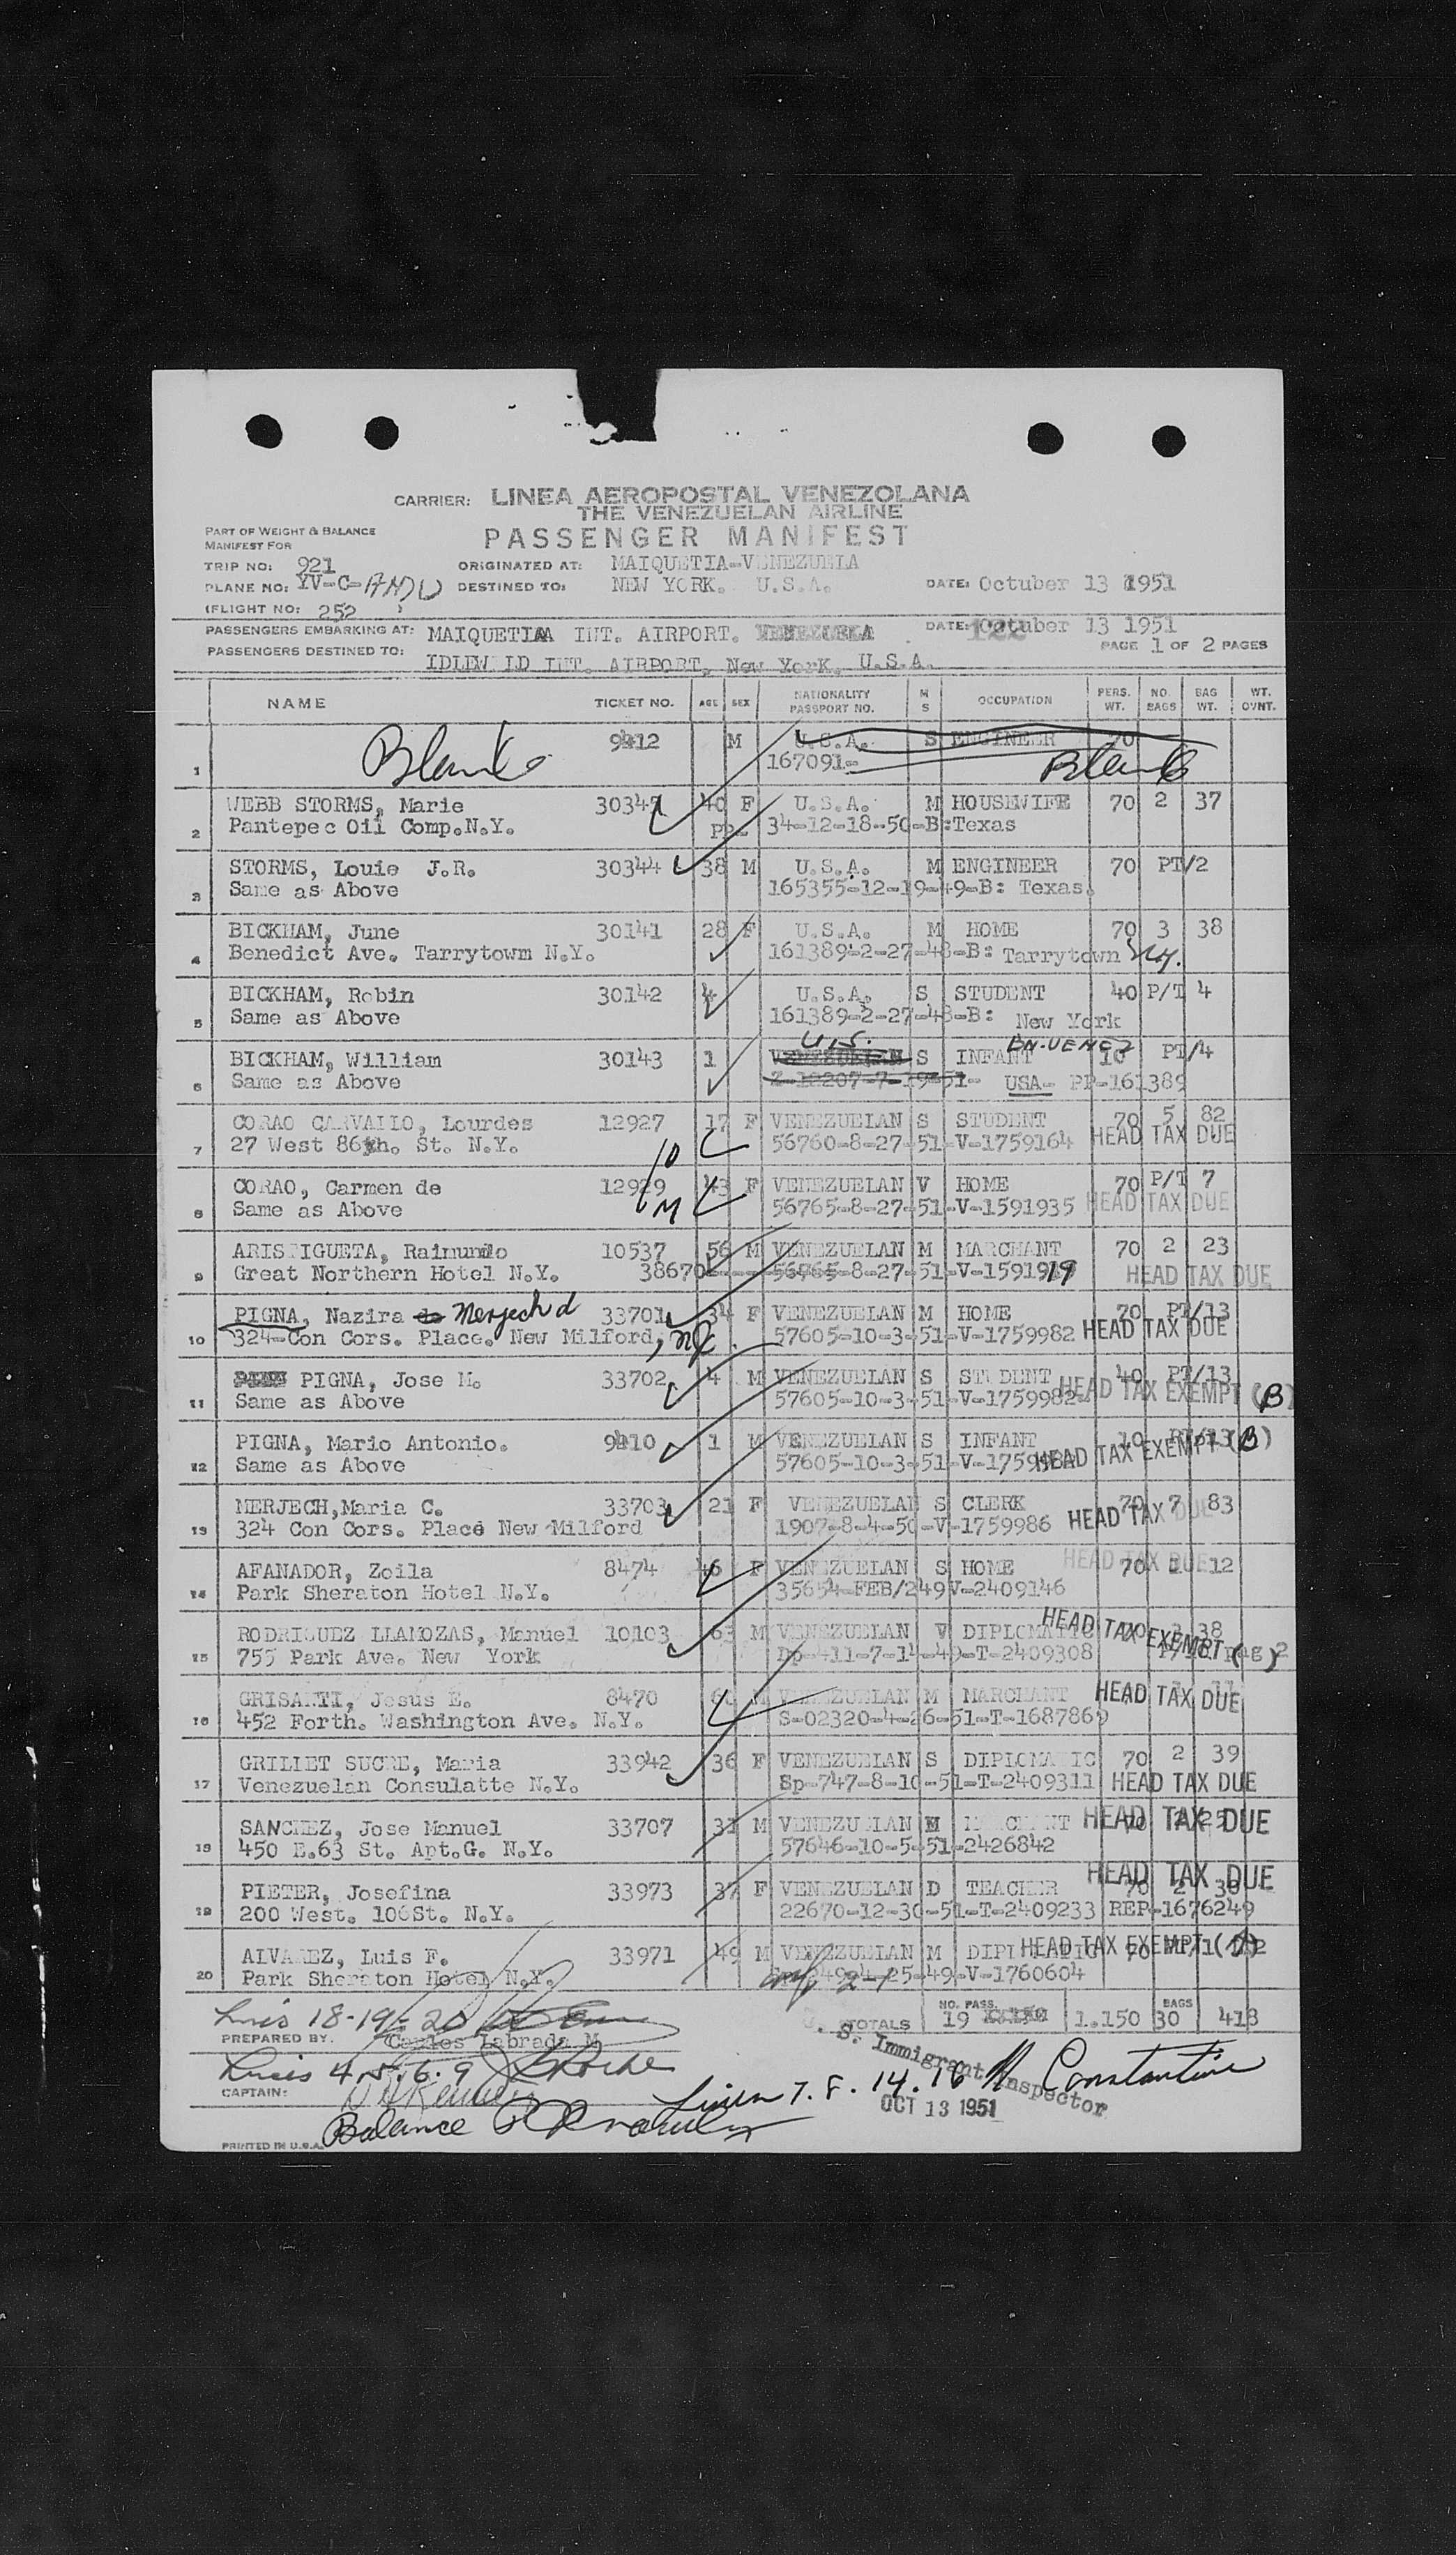 CARRIER: LINEA AEROPOSTAL VENEZOLANA
THE VENEZUELAN AIRLINE
PASSENGER MANIFEST
PART OF WEIGHT & BALANCE
MANIFEST FOR
TRIP NO: 921 ORIGINATED AT: MAIQUETIA-VENEZUELA
PLANE NO: YV-C-ANDU DESTINED TO: NEW YORK. U.S.A. DATE: Octuber 13 1951
(FLIGHT NO: 252 )
PASSENGERS EMBARKING AT: MAIQUETIA INT. AIRPORT. VENEZUELA DATE: Octuber 13 1951
PASSENGERS DESTINED TO: IDLEWILD INT. AIRPORT, New York, U.S.A. PAGE 1 OF 2 PAGES
NAME TICKET NO. AGE SEX NATIONALITY PASSPORT NO. M S OCCUPATION PERS. WT. NO. BAGS BAG WT. WT. OVNT.
1 Blank 9412 M U.S.A. S ENGINEER 70
167091- Blank
2 WEBB STORMS, Marie 30345 40 F U.S.A. M HOUSEWIFE 70 2 37
Pantepec Oil Comp.N.Y. 34-12-18-50-B:Texas
3 STORMS, Louie J.R. 30344 38 M U.S.A. M ENGINEER 70 PT/2
Same as Above 165355-12-19-49-B: Texas.
4 BICKHAM, June 30141 28 F U.S.A. M HOME 70 3 38
Benedict Ave. Tarrytowm N.Y. 161389-2-27-48-B: Tarrytown N.Y.
5 BICKHAM, Robin 30142 4 U.S.A. S STUDENT 40 P/T 4
Same as Above 161389-2-27-48-B: New York
6 BICKHAM, William 30143 1 U.S. S INFANT BN.VENEZ 10 PT/4
Same as Above Z-18207-7-19-51- USA- PP-161389
7 CORAO CARVALLO, Lourdes 12927 17 F VENEZUELAN S STUDENT 70 5 82
27 West 86th. St. N.Y. 56760-8-27-51-V-1759164 HEAD TAX DUE
8 CORAO, Carmen de 12929 43 F VENEZUELAN V HOME 70 P/T 7
Same as Above 56765-8-27-51-V-1591935 HEAD TAX DUE
9 ARISTIGUETA, Raimundo 10537 56 M VENEZUELAN M MARCHANT 70 2 23
Great Northern Hotel N.Y. 38670 56765-8-27-51-V-1591919 HEAD TAX DUE
10 PIGNA, Nazira de Merjech d 33701 34 F VENEZUELAN M HOME 70 PT/13
324-Con Cors. Place. New Milford, NJ. 57605-10-3-51-V-1759982 HEAD TAX DUE
11 PIGNA, Jose M. 33702 4 M VENEZUELAN S STUDENT 40 PT/13
Same as Above 57605-10-3-51-V-1759982 HEAD TAX EXEMPT (B)
12 PIGNA, Mario Antonio. 9410 1 M VENEZUELAN S INFANT 10 PT/13
Same as Above 57605-10-3-51-V-1759982 HEAD TAX EXEMPT (B)
13 MERJECH,Maria C. 33703 21 F VENEZUELAN S CLERK 70 7 83
324 Con Cors. Place New Milford 1907-8-4-50-V-1759986 HEAD TAX DUE
14 AFANADOR, Zoila 8474 46 F VENEZUELAN S HOME 70 12 HEAD TAX DUE
Park Sheraton Hotel N.Y. 35654-FEB/249V-2409146
15 RODRIGUEZ LLAMOZAS, Manuel 10103 63 M VENEZUELAN V DIPLOMATIC 70 38
755 Park Ave. New York Dp-411-7-14-49-T-2409308 HEAD TAX EXEMPT
16 GRISANTI, Jesus E. 8470 60 M VENEZUELAN M MARCHANT HEAD TAX DUE
452 Forth. Washington Ave. N.Y. S-02320-4-26-51-T-1687869
17 GRILLET SUCRE, Maria 33942 36 F VENEZUELAN S DIPLOMATIC 70 2 39
Venezuelan Consulatte N.Y. Sp-747-8-10-51-T-2409311 HEAD TAX DUE
18 SANCHEZ, Jose Manuel 33707 31 M VENEZUELAN M MARCHANT 70 HEAD TAX DUE
450 E.63 St. Apt.G. N.Y. 57646-10-5-51-2426842
19 PIETER, Josefina 33973 37 F VENEZUELAN D TEACHER 70 2 30 HEAD TAX DUE
200 West. 106St. N.Y. 22670-12-30-51-T-2409233 REP-1676249
20 ALVAREZ, Luis F. 33971 49 M VENEZUELAN M DIPLOMATIC 70 HEAD TAX EXEMPT (A)
Park Sheraton Hotel N.Y. 25-49-V-1760604
18-19-20
TOTALS NO. PASS. 19 1.150 BAGS 30 418
PREPARED BY. Carlos Labrada M
4.5.6.9
CAPTAIN:
7. 8. 14. 16 Constantine
U. S. Immigrant Inspector
OCT 13 1951
Balance
PRINTED IN U.S.A.